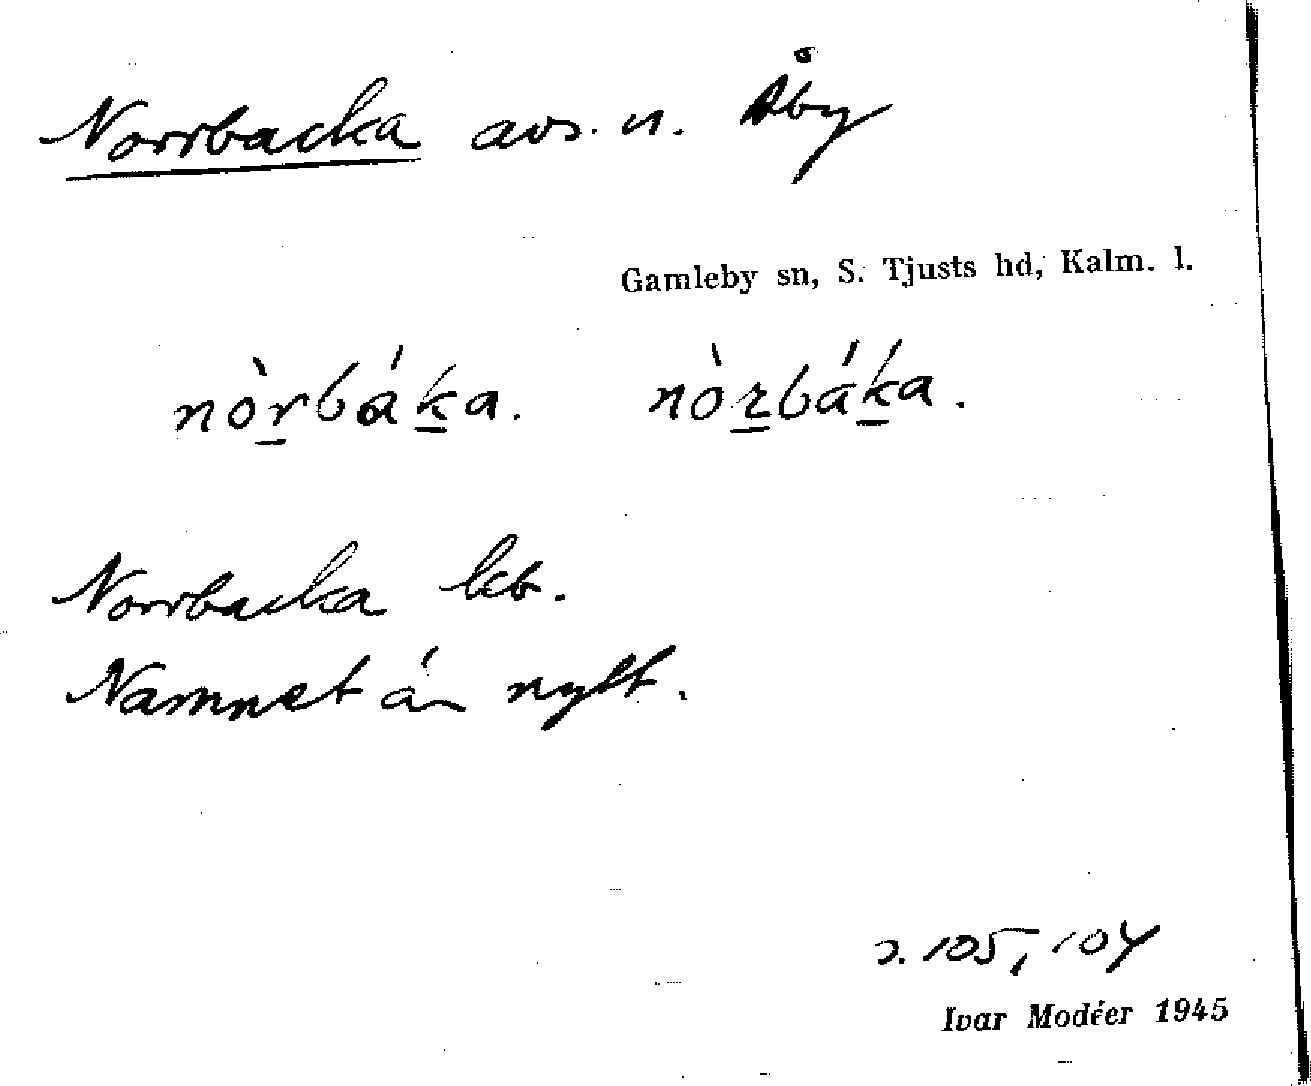 Norrbacka avs. n. Åby
Gamleby sn, S. Tjusts hd, Kalm. l.
nòr̲báḵa. nòɀ̲báḵa.
Norrbacka kb.
Namnet är nytt.
s. 105, 104
Ivar Modéer 1945